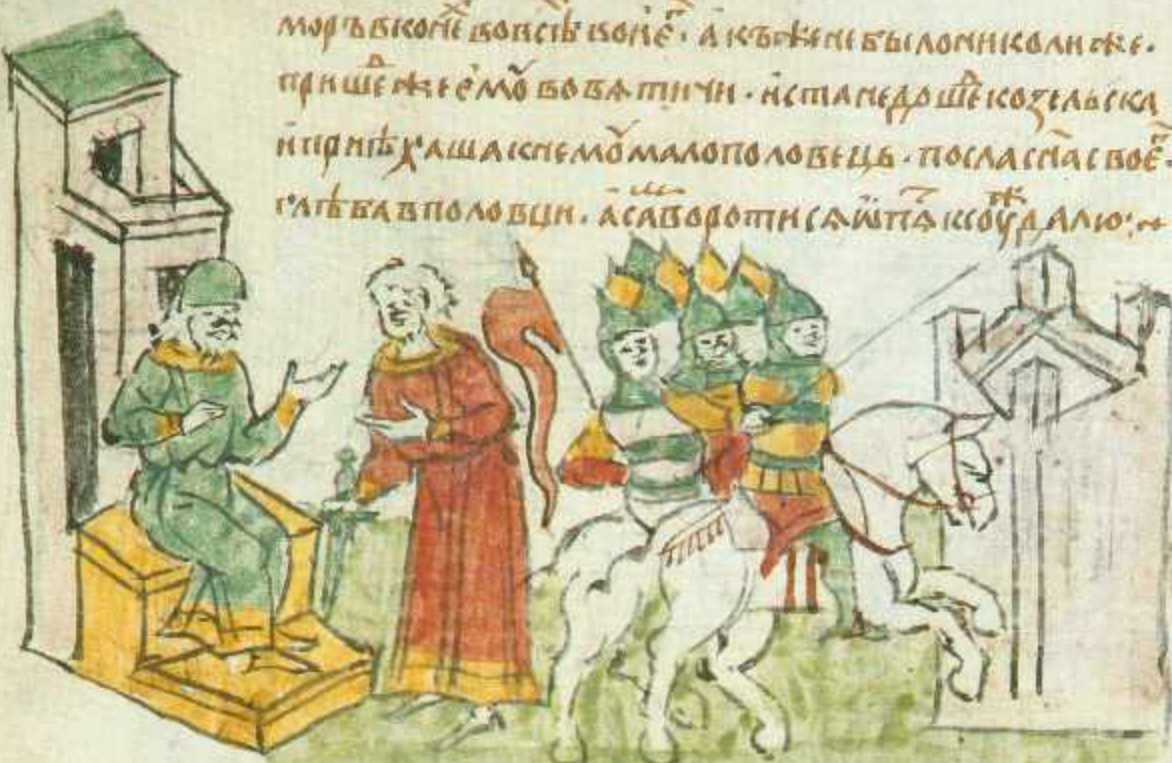 моръ в конеⷯ во всѣⷯ воиⷯ еⷢ҇. акъ же не было николи же.
пришеⷣ же емꙋ во вѧтичи. и ста не дошеⷣ козельска
и приѣхаша к немꙋ мало половець. посла сн҃а своеⷢ҇
глѣба в половци. а саⷨ воротисѧ ѡпѧⷮ к соуⷤдалю:~